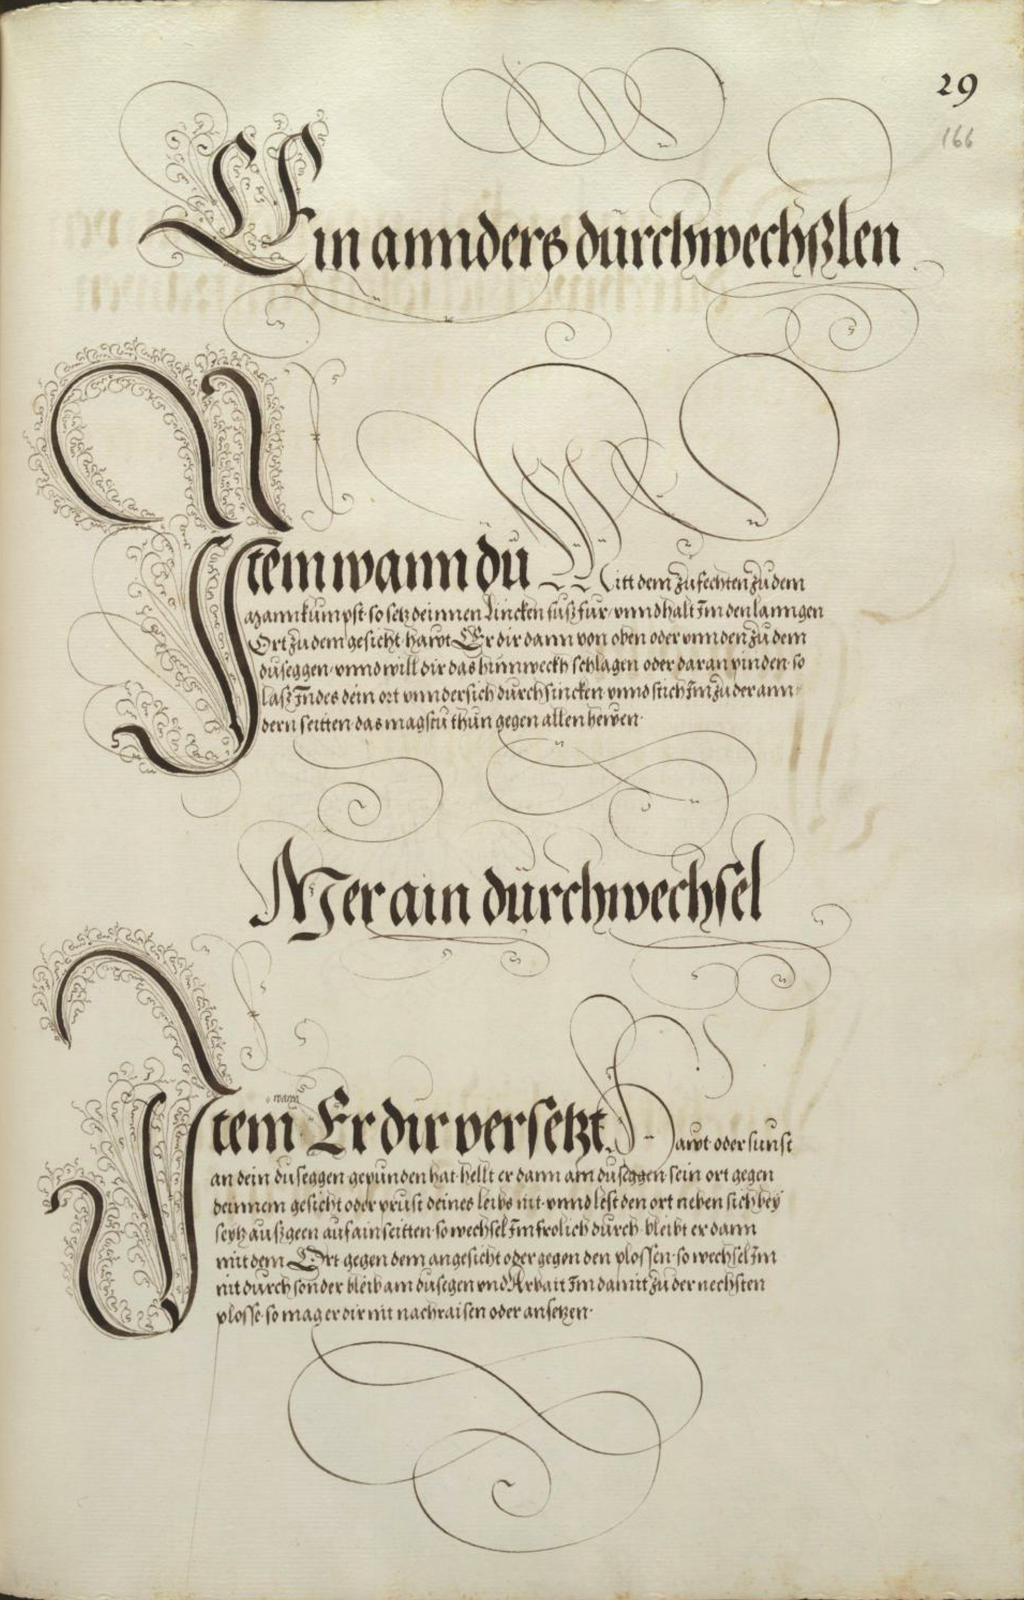 29
166
Ein annders durchwechßlen
Item wann du Mitt dem zufechten zu dem
mann kumpst so setz deinnen Lincken fusz für vnnd halt Im den lanngen
Ort zu dem gesicht hawt Er dir dann von oben oder vnnden zu dem
duseggen vnnd will dir das hinnweckh schlagen oder daran pinden so
lasz Indes dein ort vnndersich durch sincken vnnd stich Im zu der ann
dern seitten das magstu thun gegen allen hewen
Mer ain durchwechsel
wann
Item Er dir versetzt hawt oder sunst
an dein duseggen gepunden hat hellt er dann am duseggen sein ort gegen
deinnem gesicht oder prust deines leibs nit vnnd lest den ort neben sich bey
seytz ausz geen auf ain seitten so wechsel Im frolich durch bleibt er dann
mit dem Ort gegen dem angesicht oder gegen den plossen so wechsel Im
nit durch sonder bleib am dusegen vnd Arbait Im damit zu der nechsten
plosse so mag er dir nit nachraisen oder ansetzen